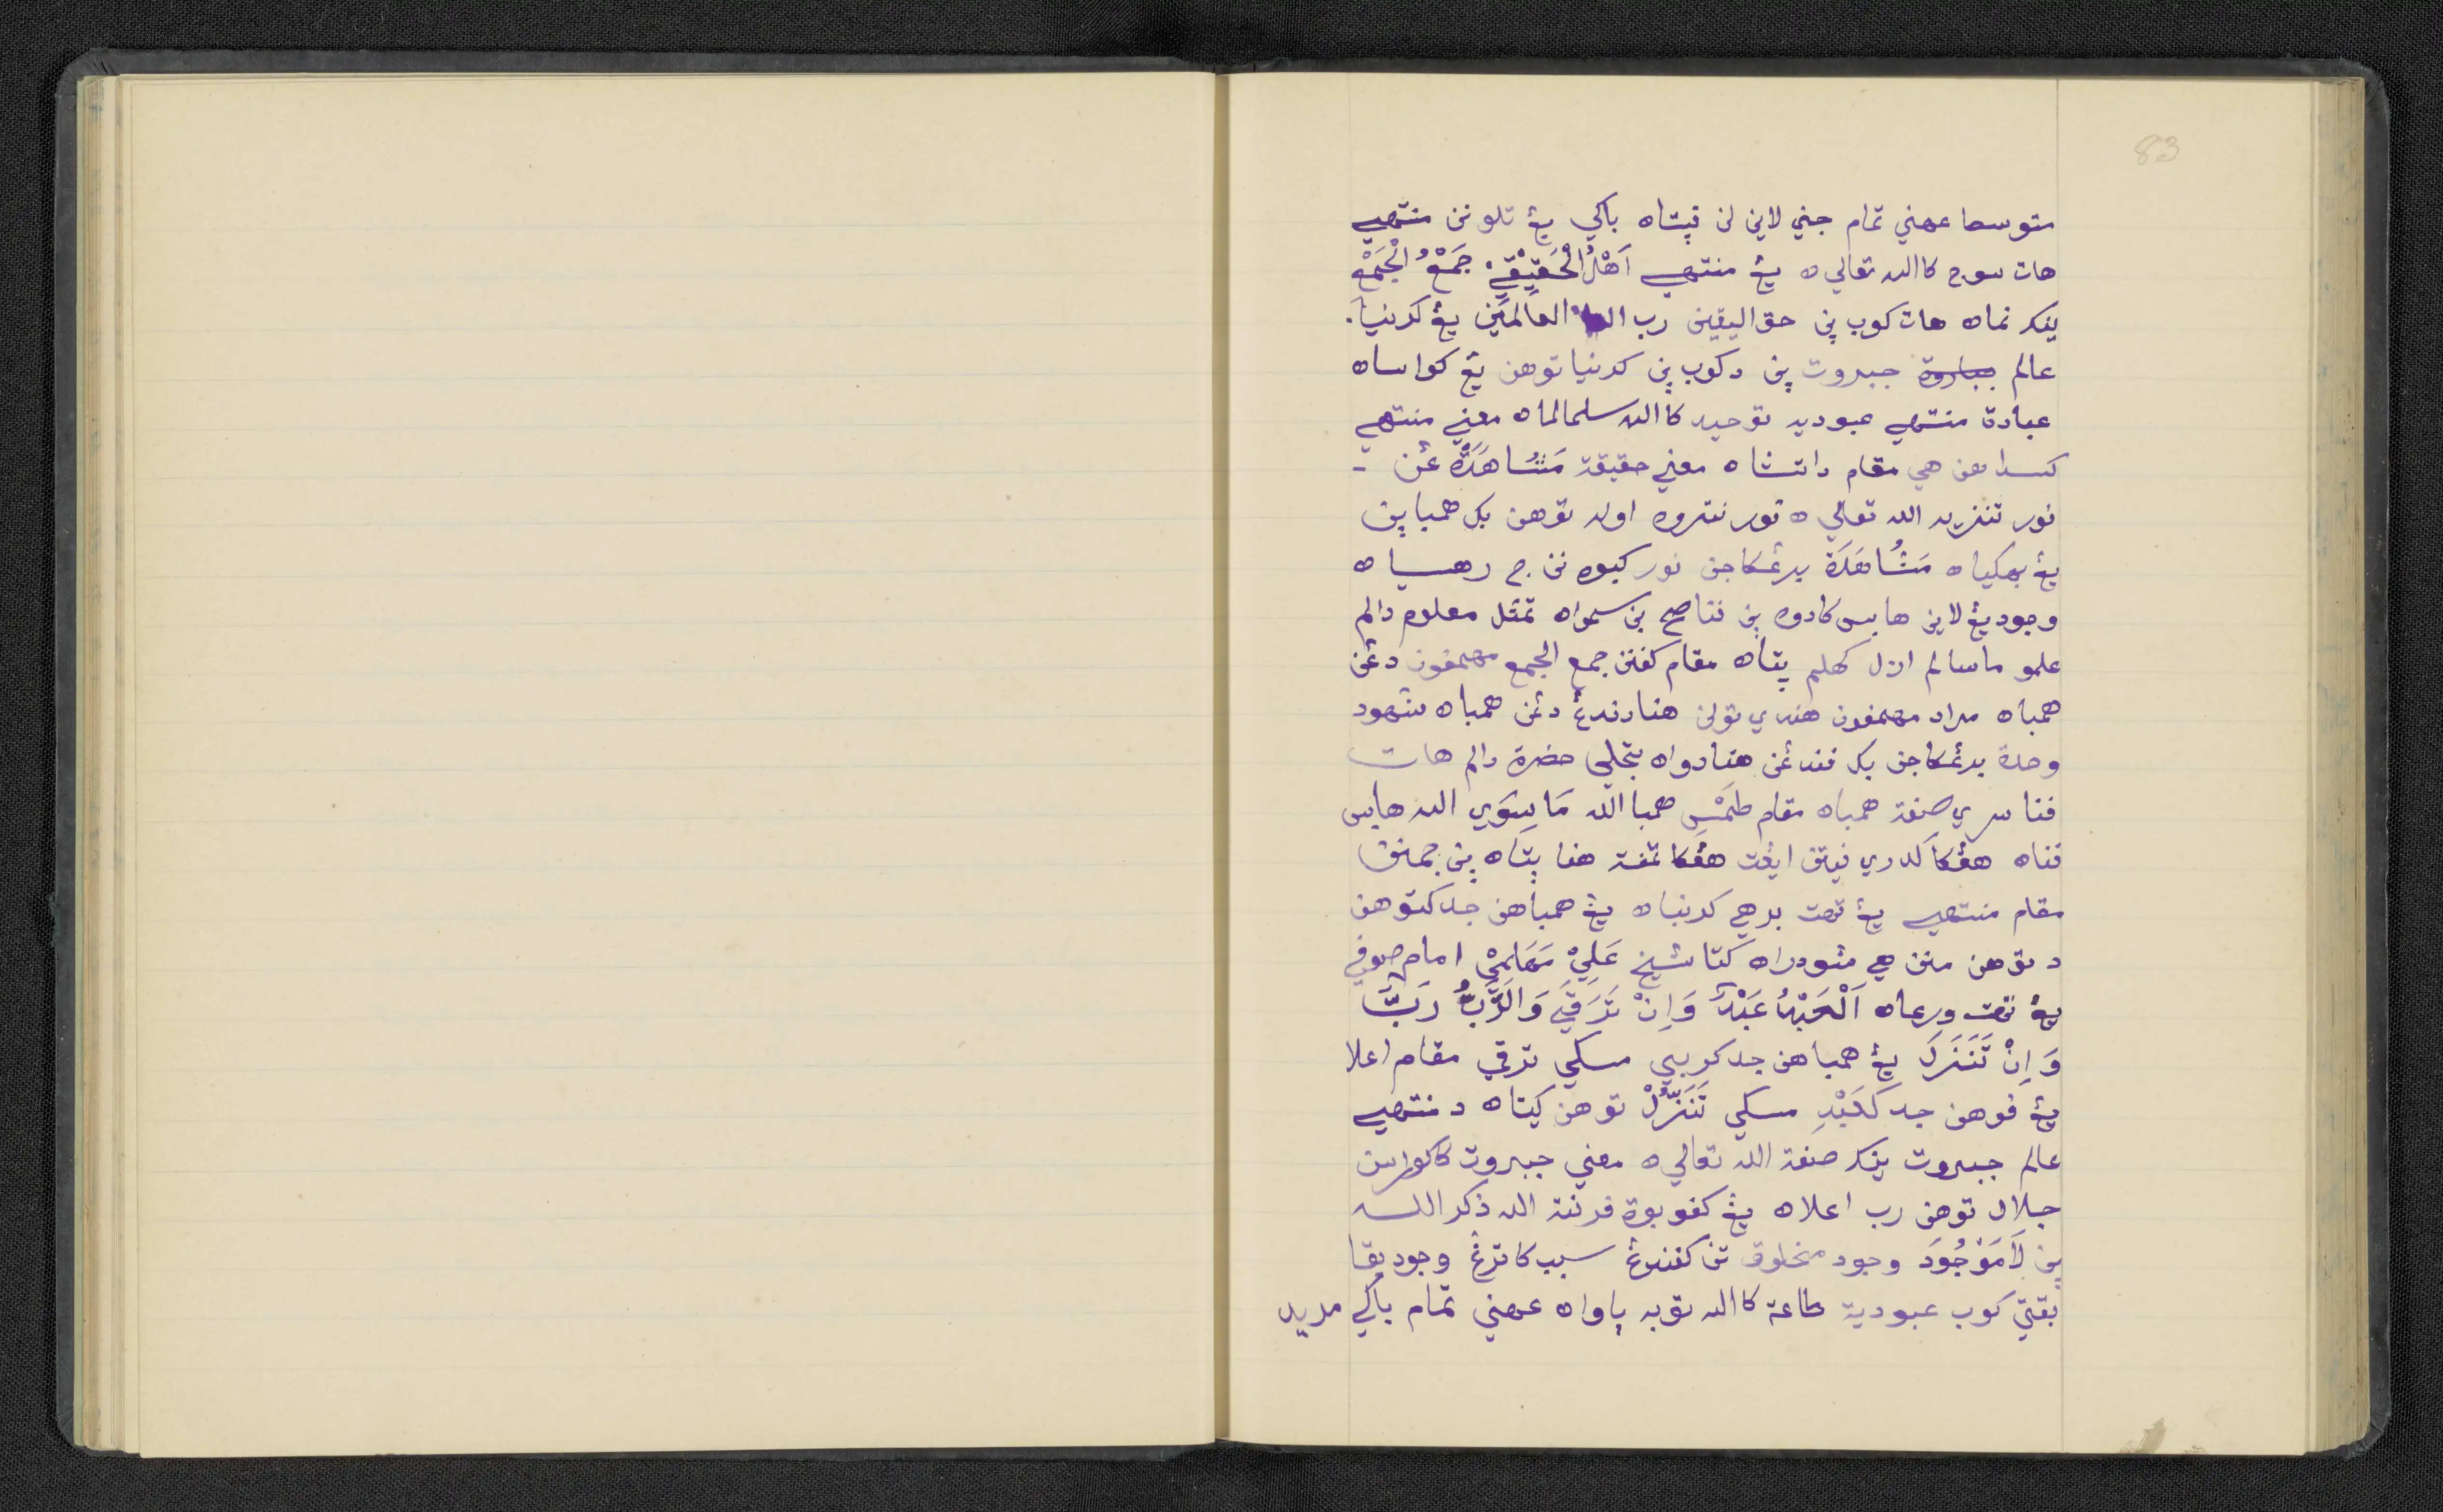 83
متوسط عهني تمام جني لاين لن ڤيتاه باكي يڠ تلو نن منتهي
هات سوچ كا الله تعالي ه يڠ منتهي اَهْلُ الْحَقِيْقِيْ. جَمْعُ الْجَمْعْ
يڠكر نماه هات كوب ڽن حق اليقين رب العَالَمِيْن يڠ كدنيا.
عالم جبروت ڽن د كوب ڽن كدنيا توهن يڠ كواساه
عبادة منتهي عبوديه توحيد كا الله سلمالماه معني منتهي
مقام داتشاه معني حقيقة مَشَاهَدَةْ عڠن -
نور تنزيه الله تعالي ه نور نتروه اوله توهن بكـ همبا ڽن
يڠ بهكياه مَشُاهَدَة بدڠكاجن نور كبوه نن ج رهسياه
وجود يڠ لاين هابس كادوه ڽن فناصح بن سمواه تمثل معلوم دالم
علمو ماسالم ازل كهلم ڽتاه مقام كفنن جمع الجمع مهمفون دڠن
همباه مراد مهمفون هندي تولن هنا رندڠ دڠن همباه شهود
وحدة بدڠكاجن بكـ فندڠن هنا دواه تجلى حضرة دالم هات
فنا سري صفة همباه مقام طَمْسِ همبا الله مَا سِوَي الله هابس
فناه هڠكا كدري فيتن ايڠت هڠكا تمفة هنا ڽتاه ڽن جمنن
مقام منتهي يڠ تهت برهي كدنياه يڠ همباهن جد كتوهن
د توهن منن هي مڠودراه كتا شيخ عَلِيْ مَهَايِمِيْ امام صوفي
يڠ تهت ورعاه اَلْعَبْدُ عَبْدٌ وَاِنْ تَرَقَّي وَالرَّبُّ رَبٌّ
وَاِنْ تَنَزَّلَ يڠ همباهن جد كربي مسكي ترقي مقام اعلا
يڠ فوهن جد كَعَبْدِ مسكي تَنَزُّلْ توهن كيتاه د منتهي
عالم جبروت يڠكر صفة الله تعالي ه معني جبروت كاكوراسن
جلال توهن رب اعلاه يڠ كفوبوة فرنته الله ذكر الله
ڽن لَامَوْجُوَدَ وجود مخلوق تن كفندڠ سبب كاترڠ وجود بقا
بقتي كوب عبودية طاعة كا الله توبه باواه عهني تمام باكي مريد